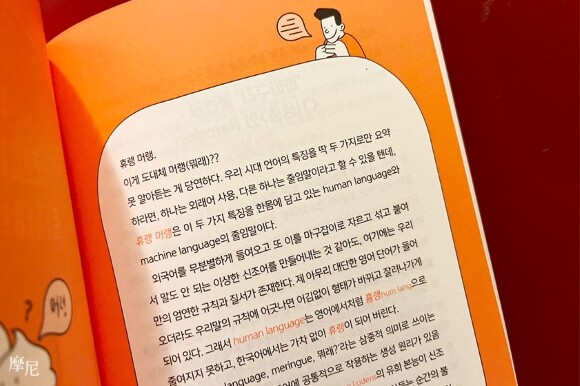 휴랭 머랭.
이게 도대체 머랭(뭐래)??
못 알아듣는 게 당연하다. 우리 시대 언어의 특징을 딱 두 가지로만 요약
하라면, 하나는 외래어 사용, 다른 하나는 줄임말이라고 할 수 있을 텐데,
휴랭 머랭은 이 두 가지 특징을 한몸에 담고 있는 human language와
machine language의 줄임말이다.
외국어를 무분별하게 들여오고 또 이를 마구잡이로 자르고 섞고 붙여
서 말도 안 되는 이상한 신조어를 만들어내는 것 같아도, 여기에는 우리
만의 엄연한 규칙과 질서가 존재한다. 제 아무리 대단한 영어 단어가 들어
오더라도 우리말의 규칙에 어긋나면 어김없이 형태가 바뀌고 잘려나가게
되어 있다. 그래서 human language는 영어에서처럼 흄랭hum lang으로
줄여지지 못하고, 한국어에서는 가차 없이 휴랭이 되어 버린다.
language, meringue, 뭐래?'라는 삼중적 의미로 쓰이는
에 공통적으로 작용하는 생성 원리가 있음
Ludens의 유희 본능이 신조
는 순간의 불
?
머랭!
摩尼